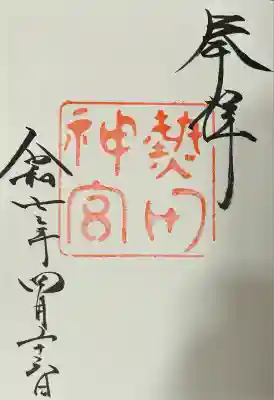 奉拝
熱田
神宮
令和七年四月二十日